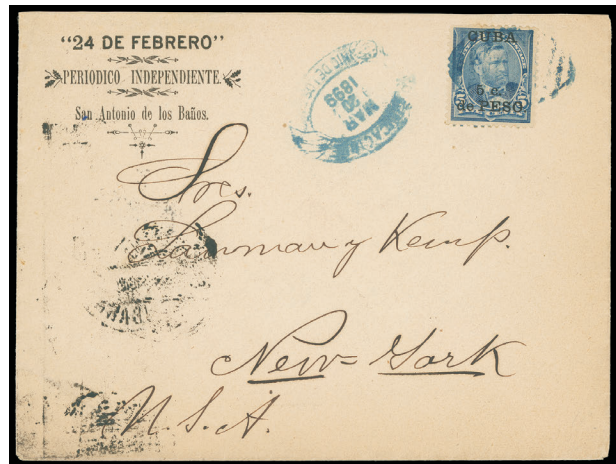 "24 DE FEBRERO"
PERIODICO INDEPENDIENTE.
San Antonio de los Baños.
MAR
20
1899
CUBA
5 c.
de PESO
Sres.
Lanman y Kemp.
New=York
U.S.A.